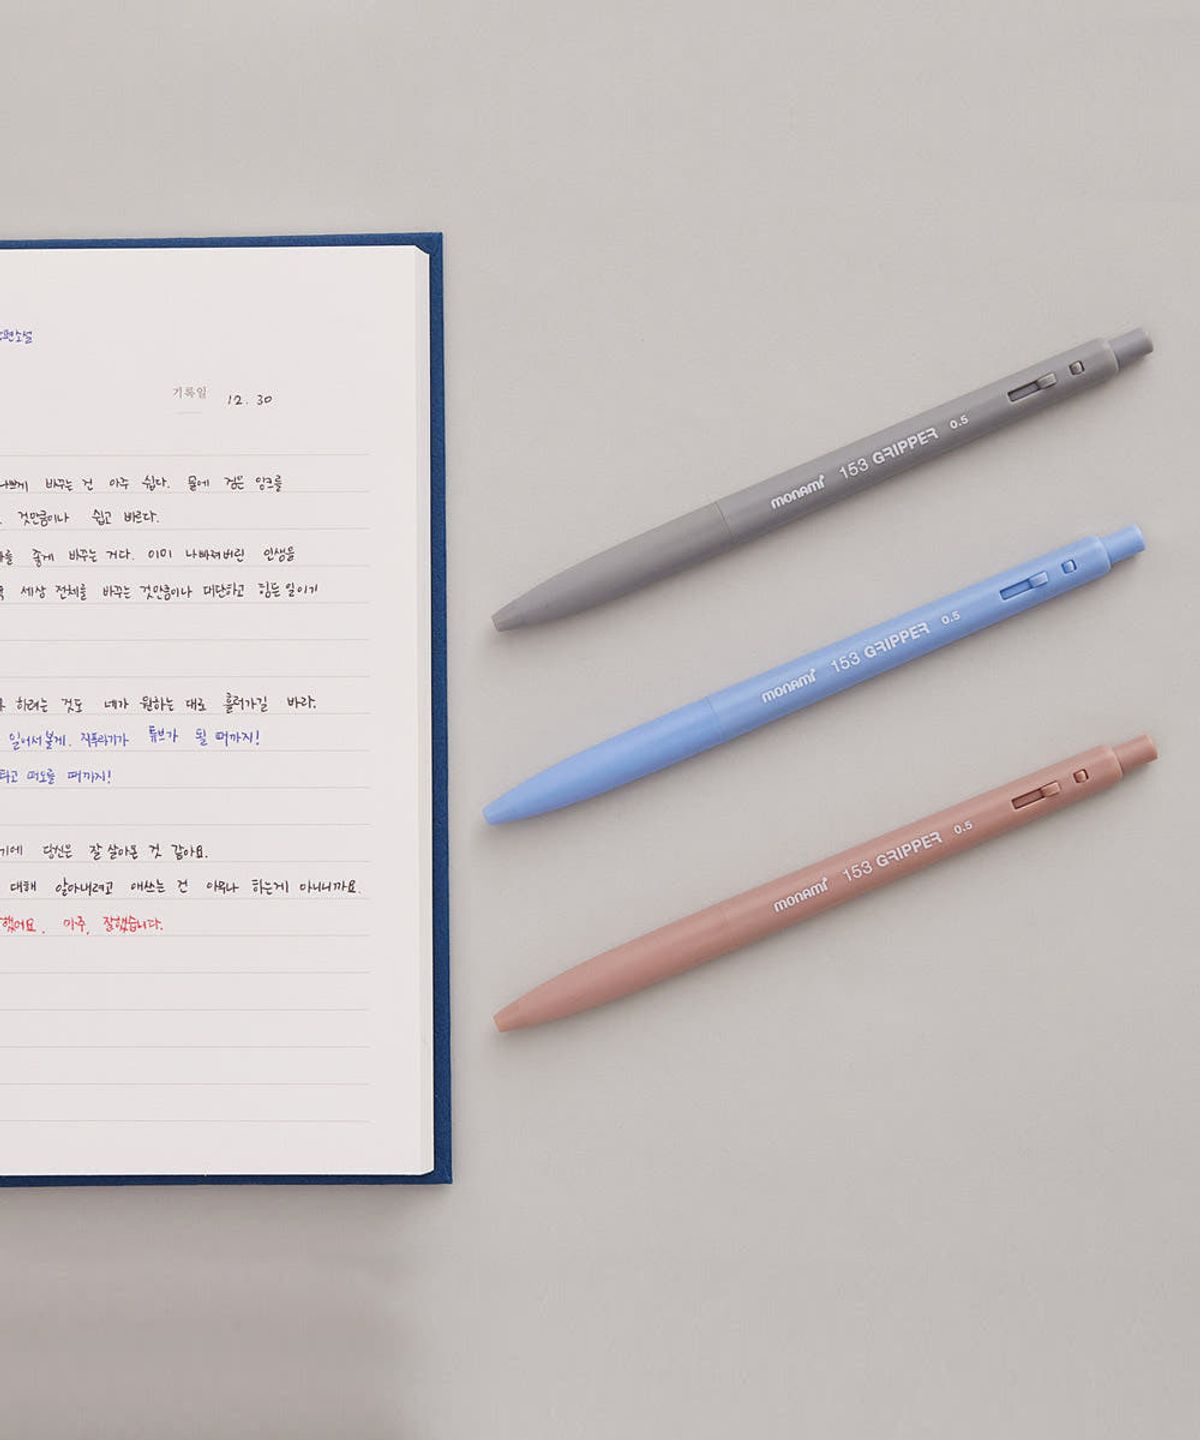 편소설
기록일 12. 30
나쁘게 바꾸는 건 아주 쉽다. 물에 검은 잉크를
것만큼이나 쉽고 빠르다.
를 좋게 바꾸는 거다. 이미 나빠져버린 인생을
세상 전체를 바꾸는 것만큼이나 대단하고 힘든 일이기
하려는 것도 네가 원하는 대로 흘러가길 바라.
일어서볼게. 지푸라기가 튜브가 될 때까지!
타고 떠오를 때까지!
기에 당신은 잘 살아온 것 같아요.
대해 알아내려고 애쓰는 건 아무나 하는게 아니니까요.
했어요. 아주, 잘했습니다.
monami 153 GRIPPER 0.5
monami 153 GRIPPER 0.5
monami 153 GRIPPER 0.5